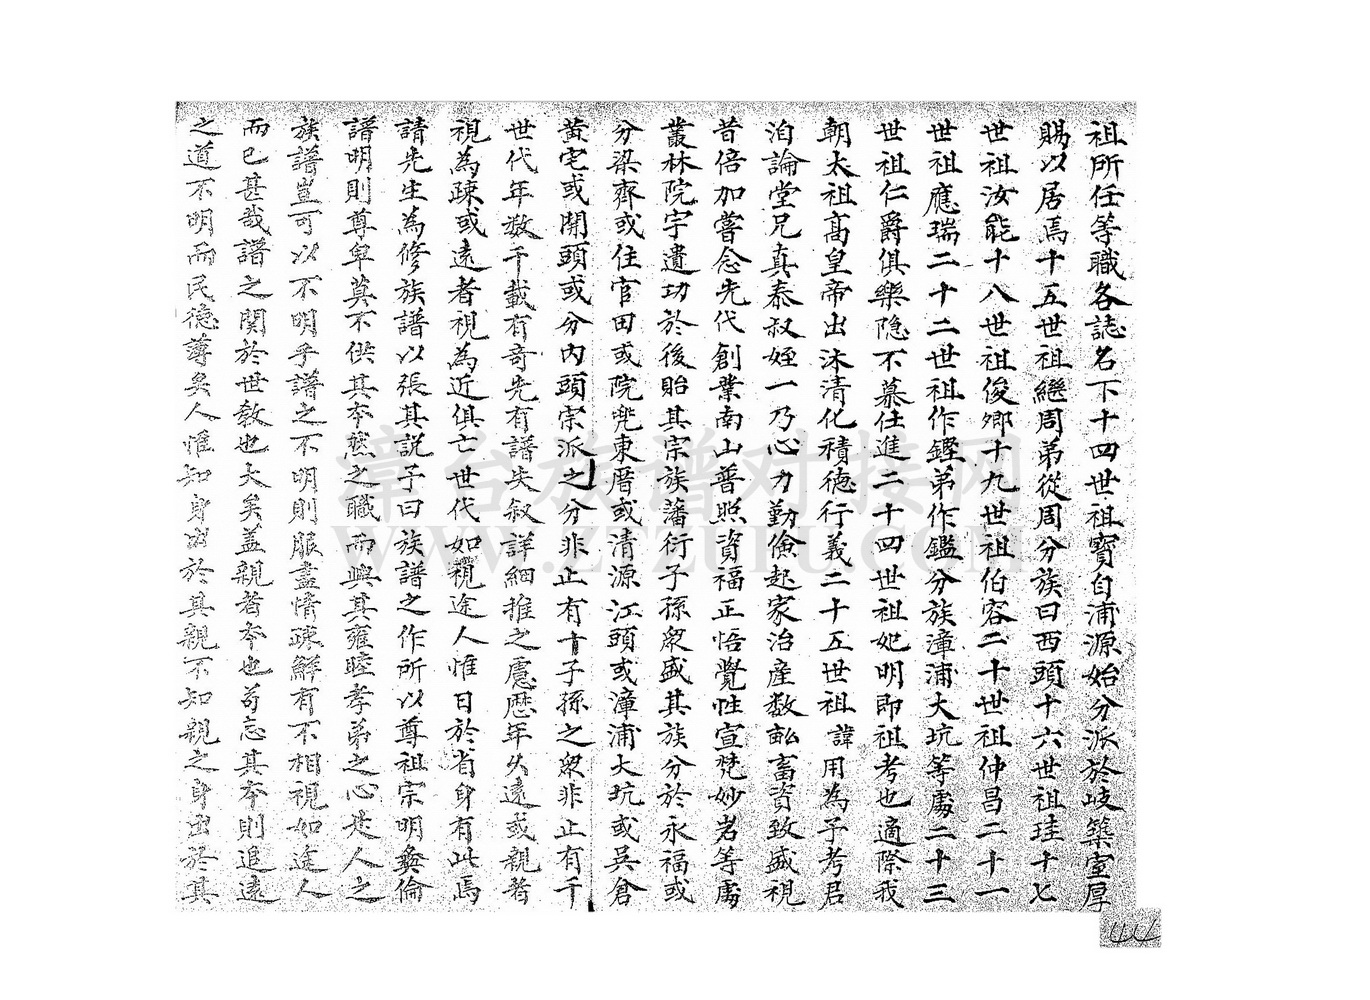 祖所任等職各誌名下十四世祖寶自浦源始分派於岐築室厚
賜以居焉十五世祖繼周弟從周分族曰西頭十六世祖珪十七
世祖汝能十八世祖俊鄉十九世祖伯容二十世祖仲昌二十一
世祖應瑞二十二世祖作鏗弟作鑑分族漳浦大坑等處二十三
世祖仁爵俱樂隐不慕仕進二十四世祖妣明即祖考也適際我
朝太祖髙皇帝出沐清化積德行義二十五世祖諱用為予考君
泊論堂兄真泰叔姪一乃心力勤儉起家治産數畝畜資致盛視
昔倍加嘗念先代創業南山普照資福正悟覺性宣梵妙岩等處
叢林院宇遺功於後貽其宗族藩衍子孫衆盛其族分於永福或
分梁齊或住官田或院兠東厝或清源江頭或漳浦大坑或吳倉
黄宅或開頭或分内頭宗派之分非止有百子孫之衆非止有千
世代年数千載有奇先有譜失叙詳細推之慮歷年久遠或親者
視為疎或遠者視為近俱亡世代如視途人惟日於省身有此焉
請先生為修族譜以張其説予曰族譜之作所以尊祖宗明彜倫
譜明則尊卑莫不供其夲然之職而興其雍睦孝弟之心是人之
族譜豈可以不明乎譜之不明則服盡情疎鮮有不相視如途人
而已甚哉譜之関於世教也大矣盖親者夲也苟忘其夲則追遠
之道不明而民德薄矣人惟知身出於其親不知親之身出於其
漳台族谱对接网
www.ztzupu.com